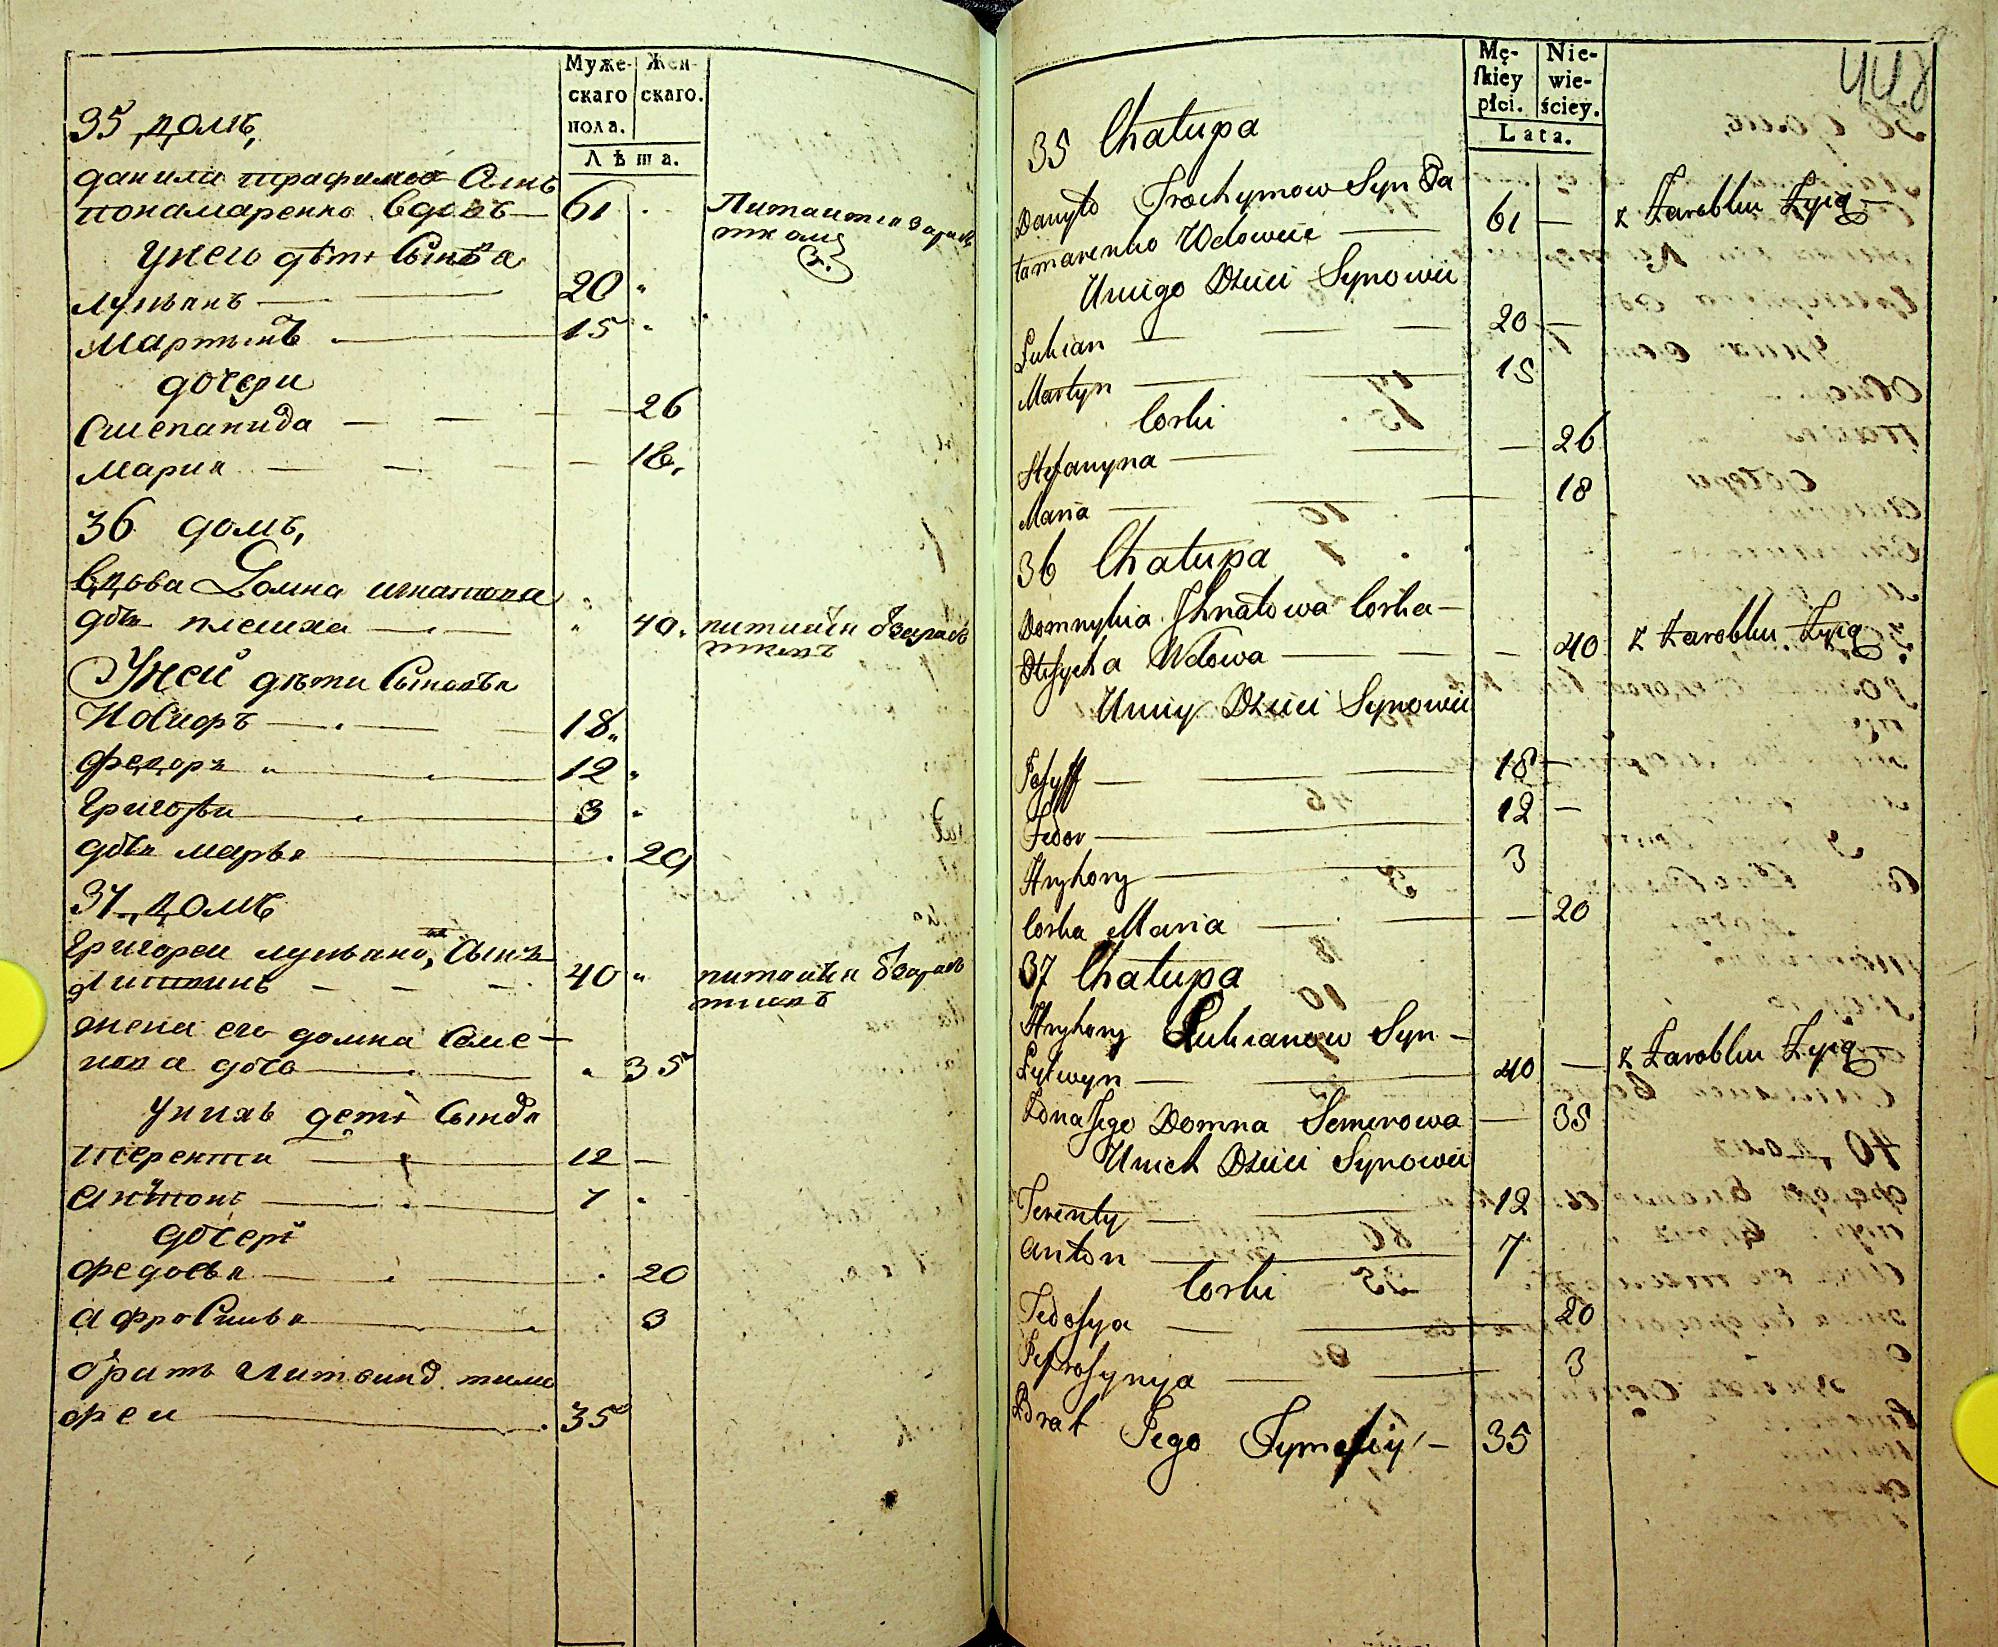 Муже-
скаго
пола.
Жен-
скаго.
Лѣта.
35 домъ,
данила трафимовъ Сынъ
понамаренко вдовъ — 61
Питаится зарабо
ткомъ
у него дѣти Сыновѣя
лукьянъ — 20
Мартынъ — 15
дочери
Степанида — 26
Мария — 18.
36 домъ,
Вдова Домна игнатова
дочь плешка — 40.
питаится ѿ зараб
откопъ
Уней дѣти Сыновья
Иосифъ — 18
федоръ — 12
Григорѣи — 3
дочь марья — 20
37 домъ
Григореи лукьяно, Сынъ
Литвинъ — 40
жена его домна Семе-
нова дочь — 35
у нихъ дети Сынови
терентеи — 12 —
антонъ — 7
дочери
федосья — 20
афросинья — 3
братъ Литвина тимо
феи — 35
Mę-
ſkiey
płci.
Nie-
wie-
ściey.
Lata.
448
35 Chałupa
Danyło Trochymow Syn Pa
łamarenko Wdowiec — 61 — z Zarobku Zyią
Uniego Dzieci Synowie
Łukian — 20 —
Martyn — 15
Corki
Stefanyna — 26
Maria — 18
36 Chałupa
Domnykia Ihnatowa Corka —
Wdowa — 40 z Zarobku Zyią
Uniey Dzieci Synowie
Josyff — 18 —
Fedor — 12 —
Hryhory — 3
Corka Maria — 20
37 Chałupa
Hryhory Łukianow Syn —
Łytwyn — 40 — z Zarobku Zyią
Żona Jego Domna Semenowa — 35
Unich Dzieci Synowie
Terenty — 12
Anton — 7
Corki
Fedosya — 20
Pefrosynya — 3
Brat Jego Tymofiy — 35